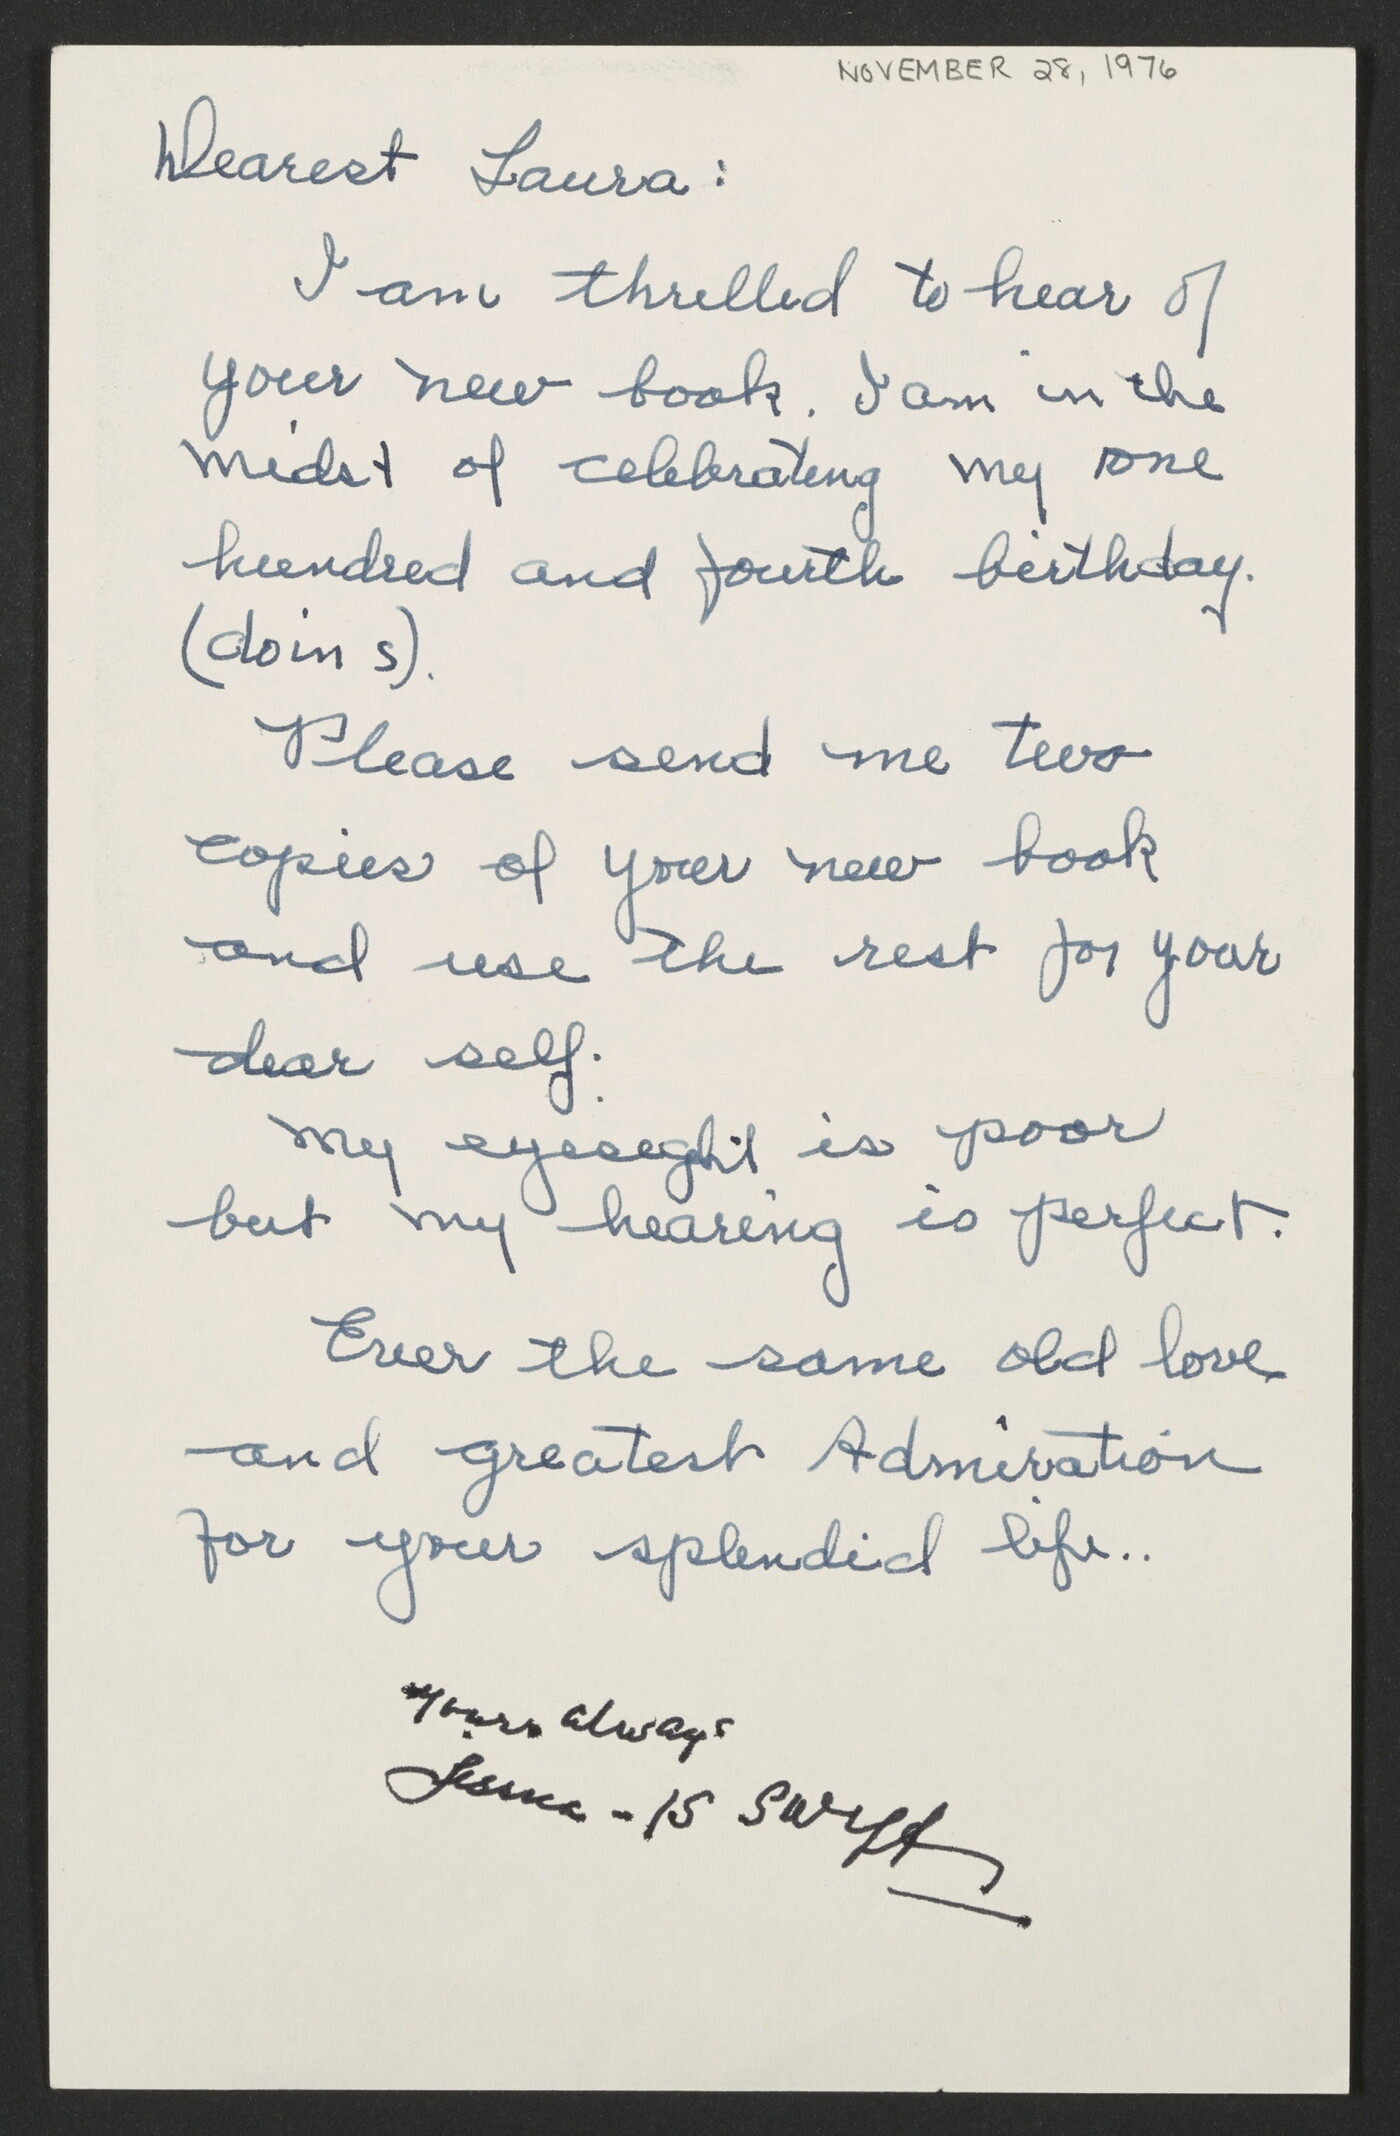 NOVEMBER 28, 1976
Dearest Laura:
I am thrilled to hear of
your new book. I am in the
midst of celebrating my one
hundred and fourth birthday.
(doin s).
Please send me two
copies of your new book
and use the rest for your
dear self.
My eyesight is poor
but my hearing is perfect.
Ever the same old love
and greatest Admiration
for your splendid life..
Yours always
Swift